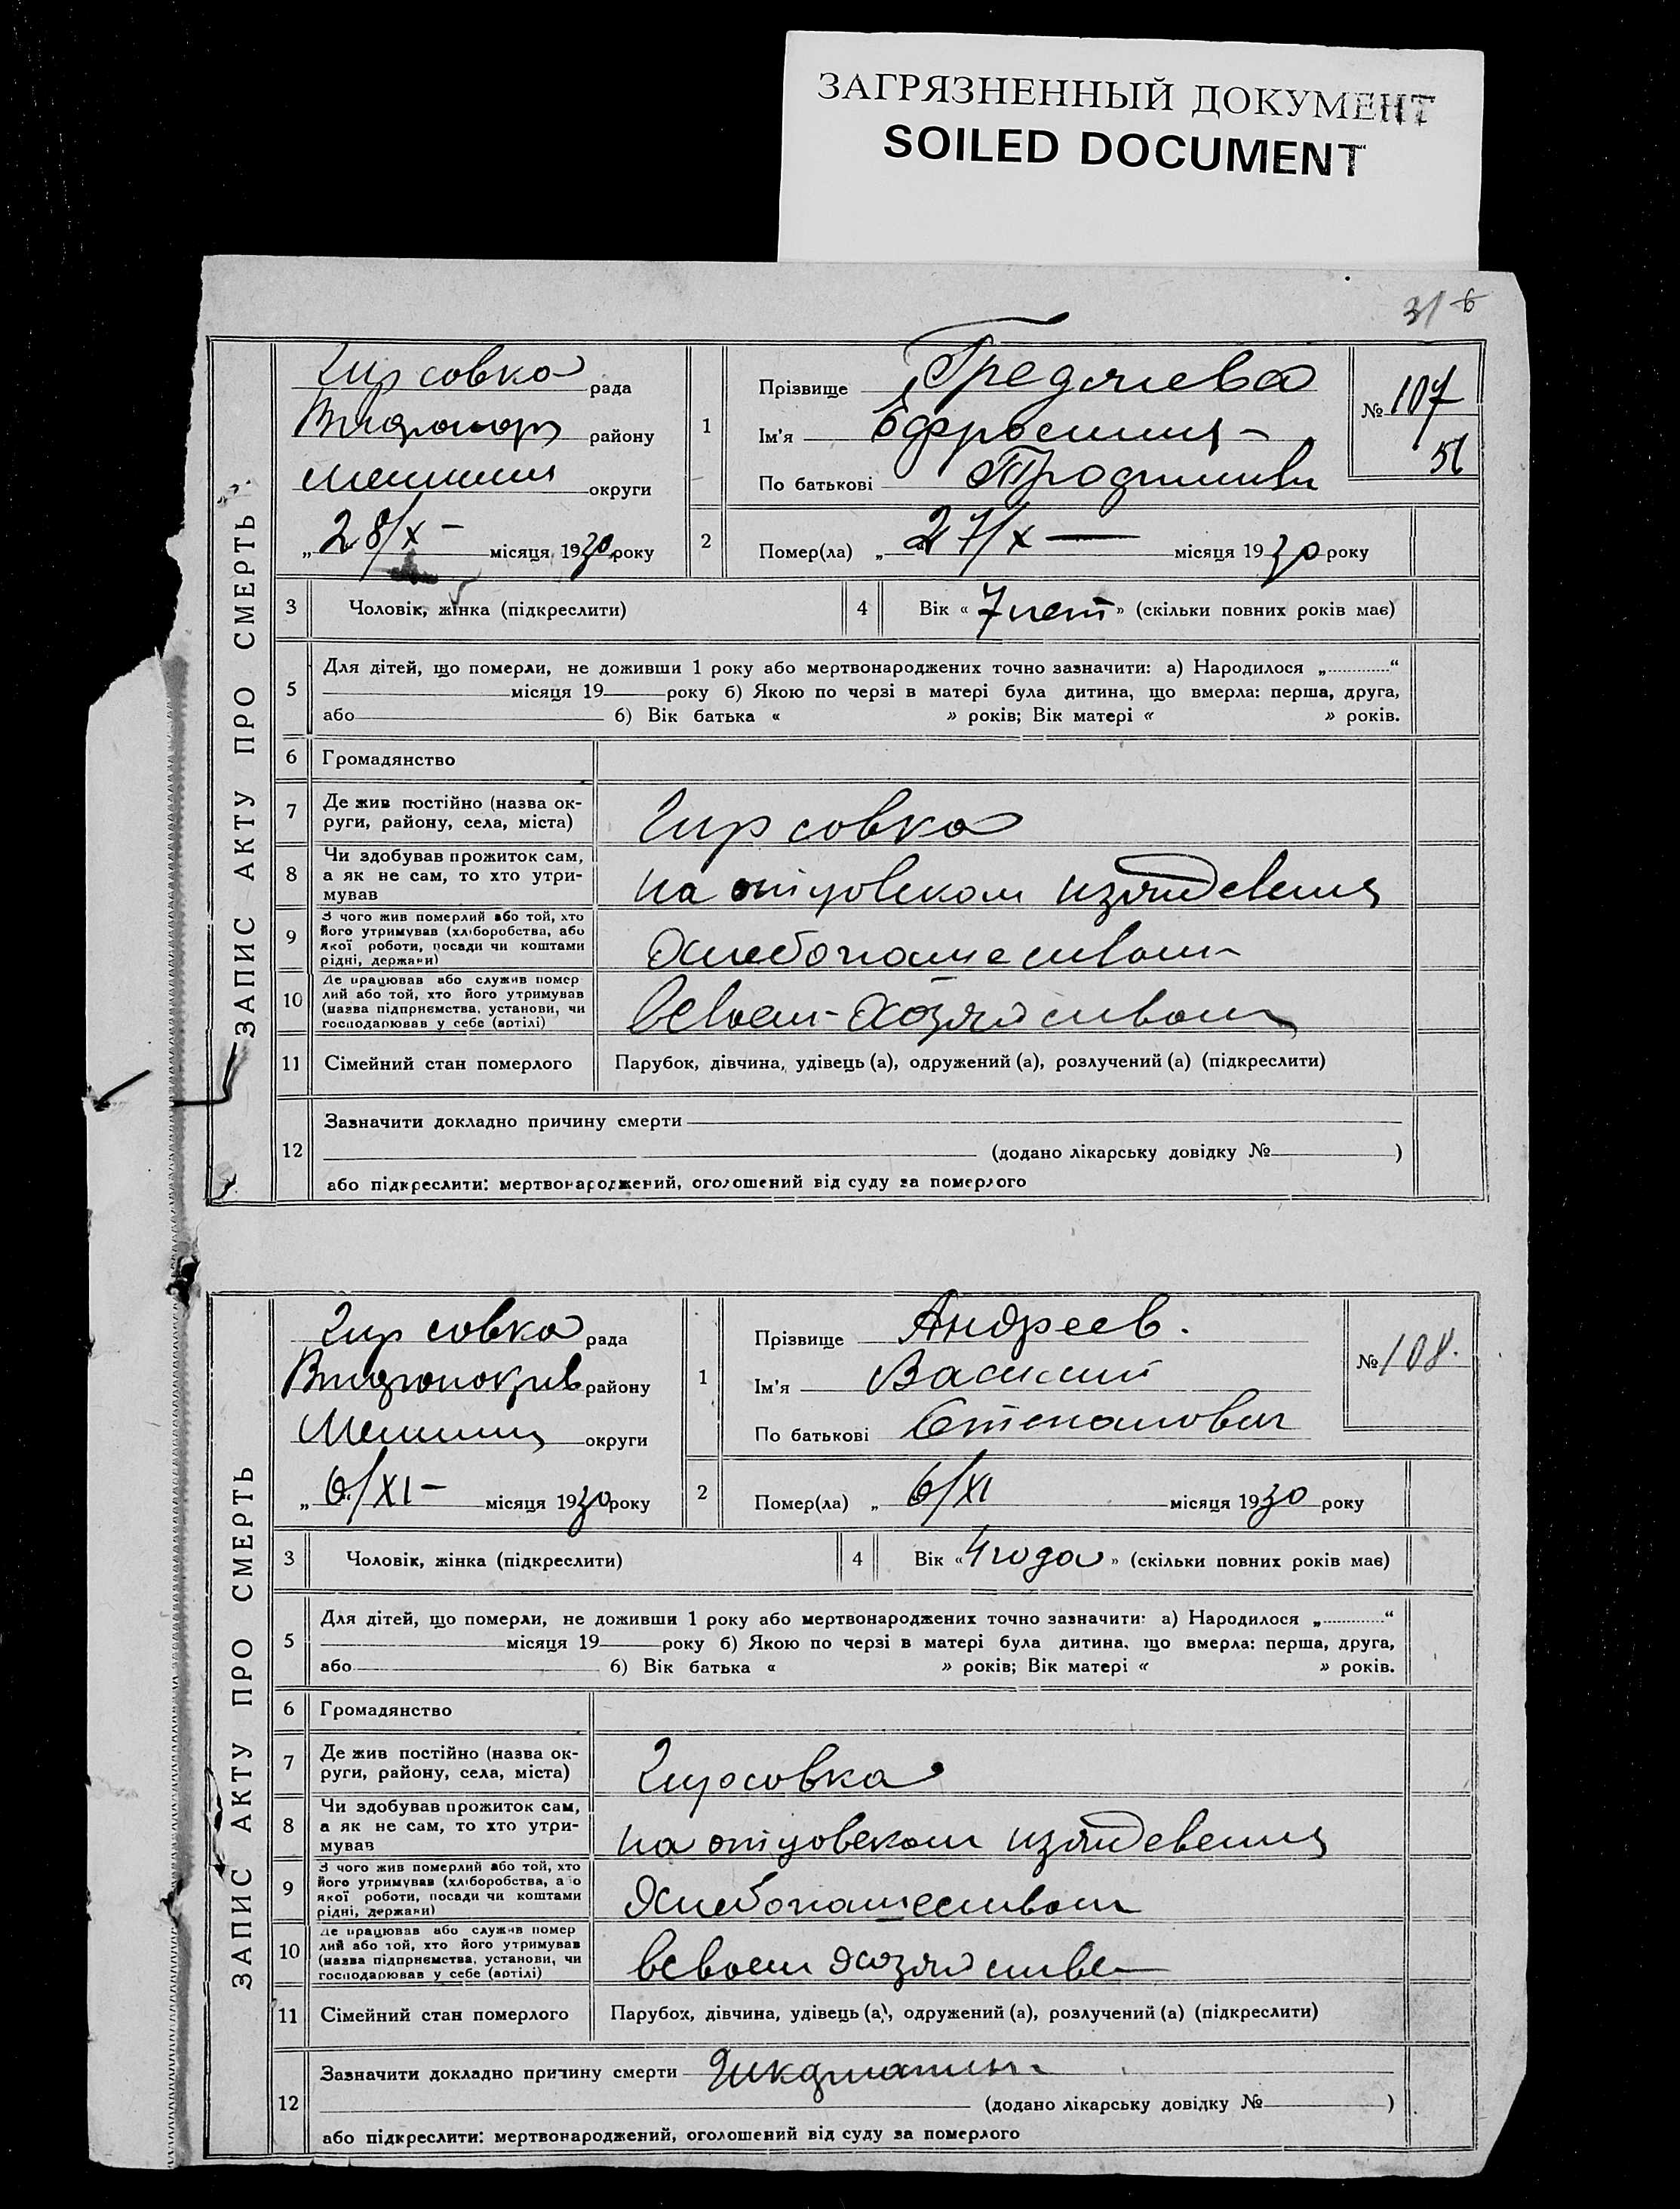 ЗАГРЯЗНЕННЫЙ ДОКУМЕНТ
SOILED DOCUMENT
ЗАПИС АКТУ ПРО СМЕРТЬ
Гирсовка рада
району
округи
„ 28/X – місяця 1930 року
1
Прізвище
Ім'я Ефросиния –
По батькові
№ 107
51
2
Помер(ла) „ 27/X — місяця 1930 року
3
Чоловік, жінка (підкреслити)
4
Вік « 7 лет » (скільки повних років має)
5
Для дітей, що померли, не доживши 1 року або мертвонароджених точно зазначити: а) Народилося „ “
місяця 19 року б) Якою по черзі в матері була дитина, що вмерла: перша, друга,
або б) Вік батька « » років; Вік матері « » років.
6
Громадянство
7
Де жив постійно (назва ок-
руги, району, села, міста)
Гирсовка
8
Чи здобував прожиток сам,
а як не сам, то хто утри-
мував
на отцовском иждевения
9
З чого жив померлий або той, хто
його утримував (хліборобства, або
якої роботи, посади чи коштами
рідні, держави)
Хлебопашеством
10
Де працював або служив помер
лий або той, хто його утримував
(назва підприємства, установи, чи
господарював у себе (артілі)
всвоем хозяйством
11
Сімейний стан померлого
Парубок, дівчина, удівець (а), одружений (а), розлучений (а) (підкреслити)
12
Зазначити докладно причину смерти
(додано лікарську довідку № )
або підкреслити: мертвонароджений, оголошений від суду за померлого
ЗАПИС АКТУ ПРО СМЕРТЬ
Гирсовка рада
району
округи
„ 6/XI – місяця 1930 року
1
Прізвище Андреев.
Ім'я Василий
По батькові Степанович
№ 108.
2
Помер(ла) „ 6/XI місяця 1930 року
3
Чоловік, жінка (підкреслити)
4
Вік « 4 года » (скільки повних років має)
5
Для дітей, що померли, не доживши 1 року або мертвонароджених точно зазначити: а) Народилося „ “
місяця 19 року б) Якою по черзі в матері була дитина, що вмерла: перша, друга,
або б) Вік батька « » років; Вік матері « » років.
6
Громадянство
7
Де жив постійно (назва ок-
руги, району, села, міста)
Гирсовка
8
Чи здобував прожиток сам,
а як не сам, то хто утри-
мував
на отцовском иждевения
9
З чого жив померлий або той, хто
його утримував (хліборобства, а о
якої роботи, посади чи коштами
рідні, держави)
Хлебопашеством
10
Де працював або служив помер
лий або той, хто його утримував
(назва підприємства, установи, чи
господарював у себе (артілі)
всвоем хозяйстве
11
Сімейний стан померлого
Парубок, дівчина, удівець (а), одружений (а), розлучений (а) (підкреслити)
12
Зазначити докладно причину смерти
(додано лікарську довідку № )
або підкреслити: мертвонароджений, оголошений від суду за померлого